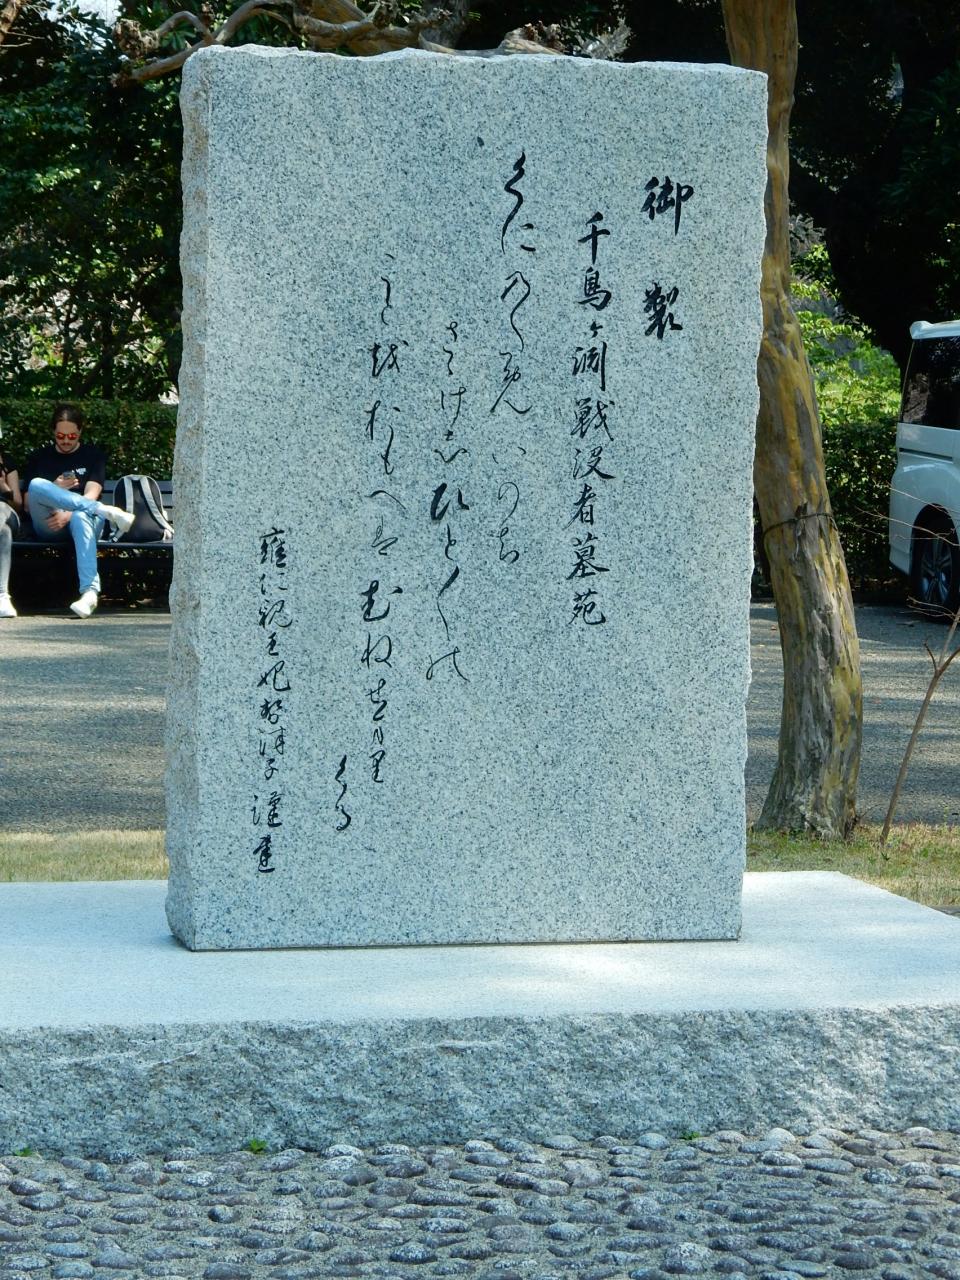 御製
千鳥ヶ渕戦没者墓苑
くにのためいのち
さゝけしひと／＼の
こと越於もへ者
むねせまり
くる
雍仁親王妃勢津子謹書